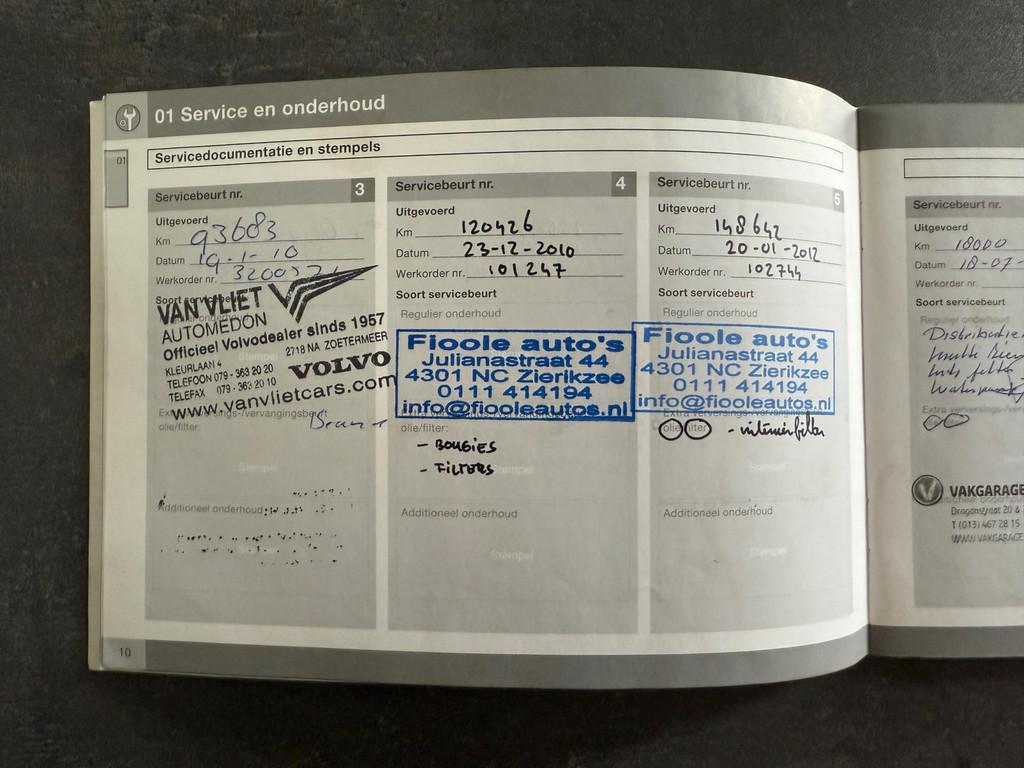 01 Service en onderhoud
01
Servicedocumentatie en stempels
Servicebeurt nr. 3
Uitgevoerd
Km 93683
Datum 19-1-10
Werkorder nr.
VAN VLIET
AUTOMEDON
Officieel Volvodealer sinds 1957
KLEURLAAN 4
2718 NA ZOETERMEER
TELEFOON 079 - 363 20 20
TELEFAX 079 - 363 20 10
VOLVO
www.vanvlietcars.com
olie/filter:
Stempel
Additioneel onderhoud
10
Servicebeurt nr. 4
Uitgevoerd
Km 120426
Datum 23-12-2010
Werkorder nr. 101247
Soort servicebeurt
Regulier onderhoud
Fioole auto's
Julianastraat 44
4301 NC Zierikzee
0111 414194
info@fiooleautos.nl
olie/filter:
- BOUGIES
- FILTERS
Stempel
Additioneel onderhoud
Stempel
Servicebeurt nr. 5
Uitgevoerd
Km 148642
Datum 20-01-2012
Werkorder nr. 102744
Soort servicebeurt
Regulier onderhoud
Fioole auto's
Julianastraat 44
4301 NC Zierikzee
0111 414194
info@fiooleautos.nl
olie/filter: - interieurfilter
Stempel
Additioneel onderhoud
Stempel
Servicebeurt nr.
Uitgevoerd
Km
Datum 18-07-
Werkorder nr.
Soort servicebeurt
Regulier onderhoud
Distributie
VAKGARAGE
T (013) 467 28 15
WWW.VAKGARAGE